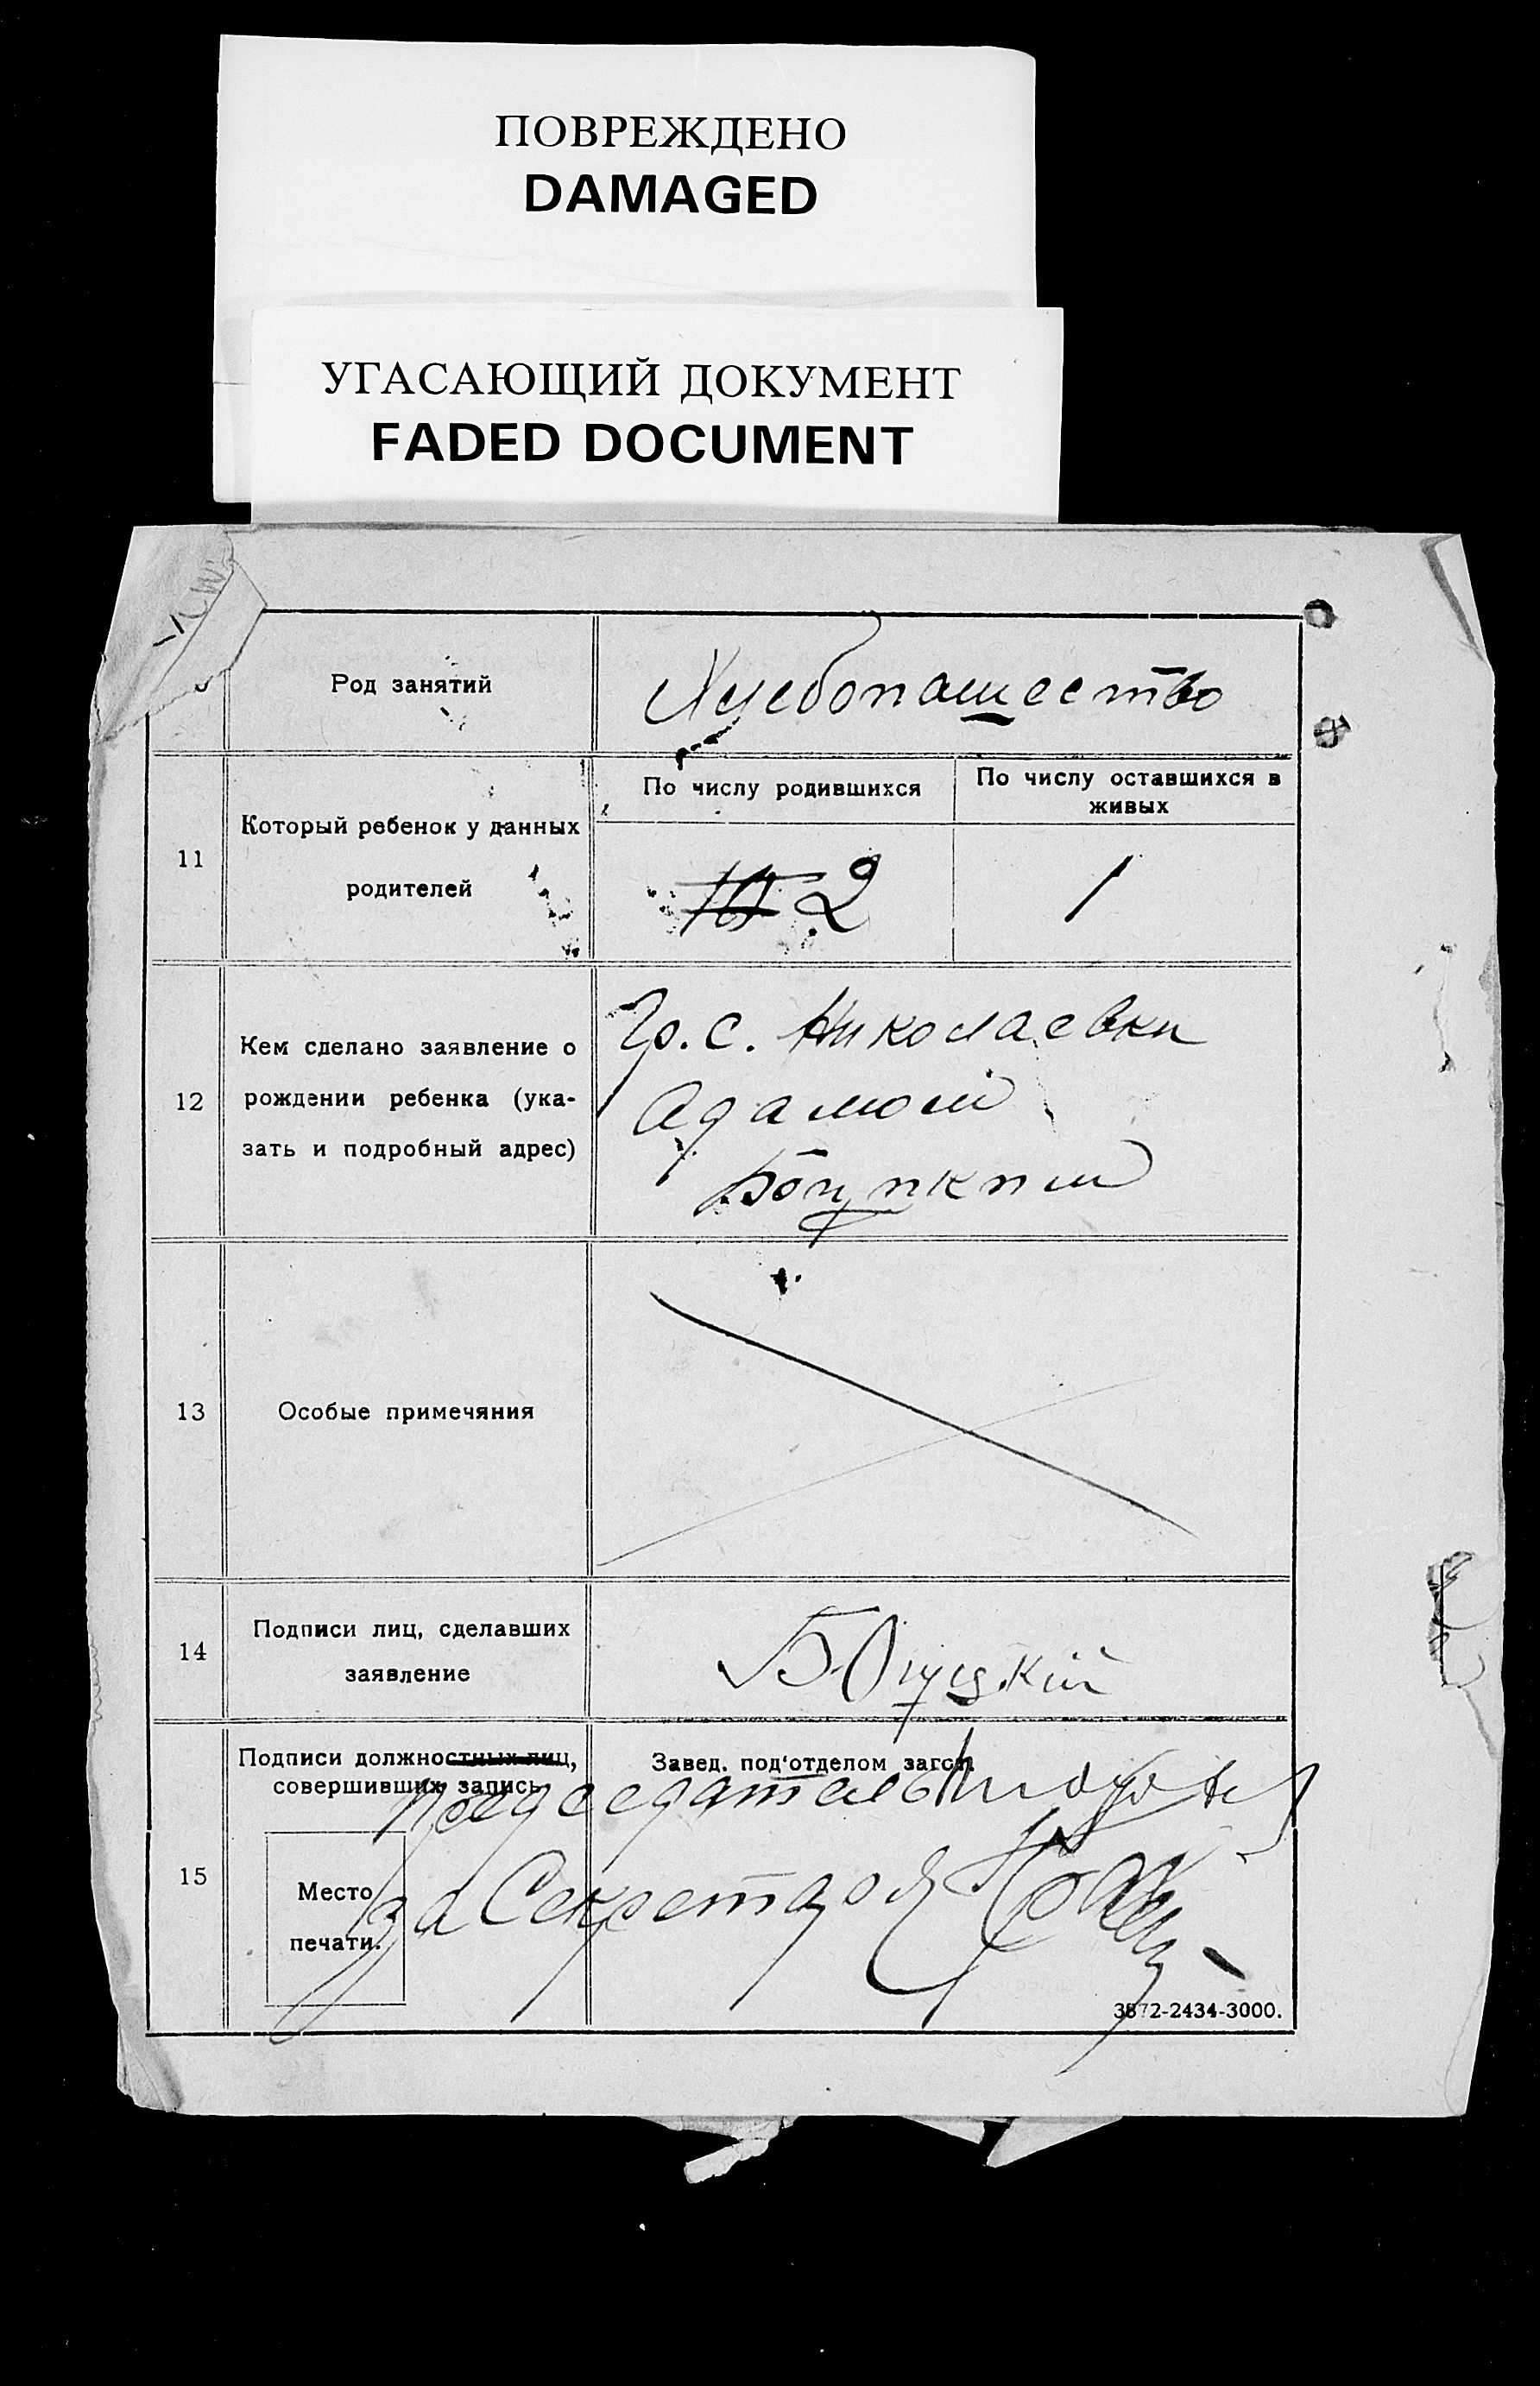 ПОВРЕЖДЕНО
DAMAGED
УГАСАЮЩИЙ ДОКУМЕНТ
FADED DOCUMENT
Род занятий
Хлебопашество
11
Который ребенок у данных
родителей
По числу родившихся
По числу оставшихся в
живых
2
1
12
Кем сделано заявление о
рождении ребенка (ука-
зать и подробный адрес)
Гр. с. Николаевки
Адамом
13
Особые примечяния
14
Подписи лиц, сделавших
заявление
15
Подписи должностных лиц,
совершивших запись
Завед. под'отделом загса
Председатель
за Секретаря
Место
печати.
3872-2434-3000.